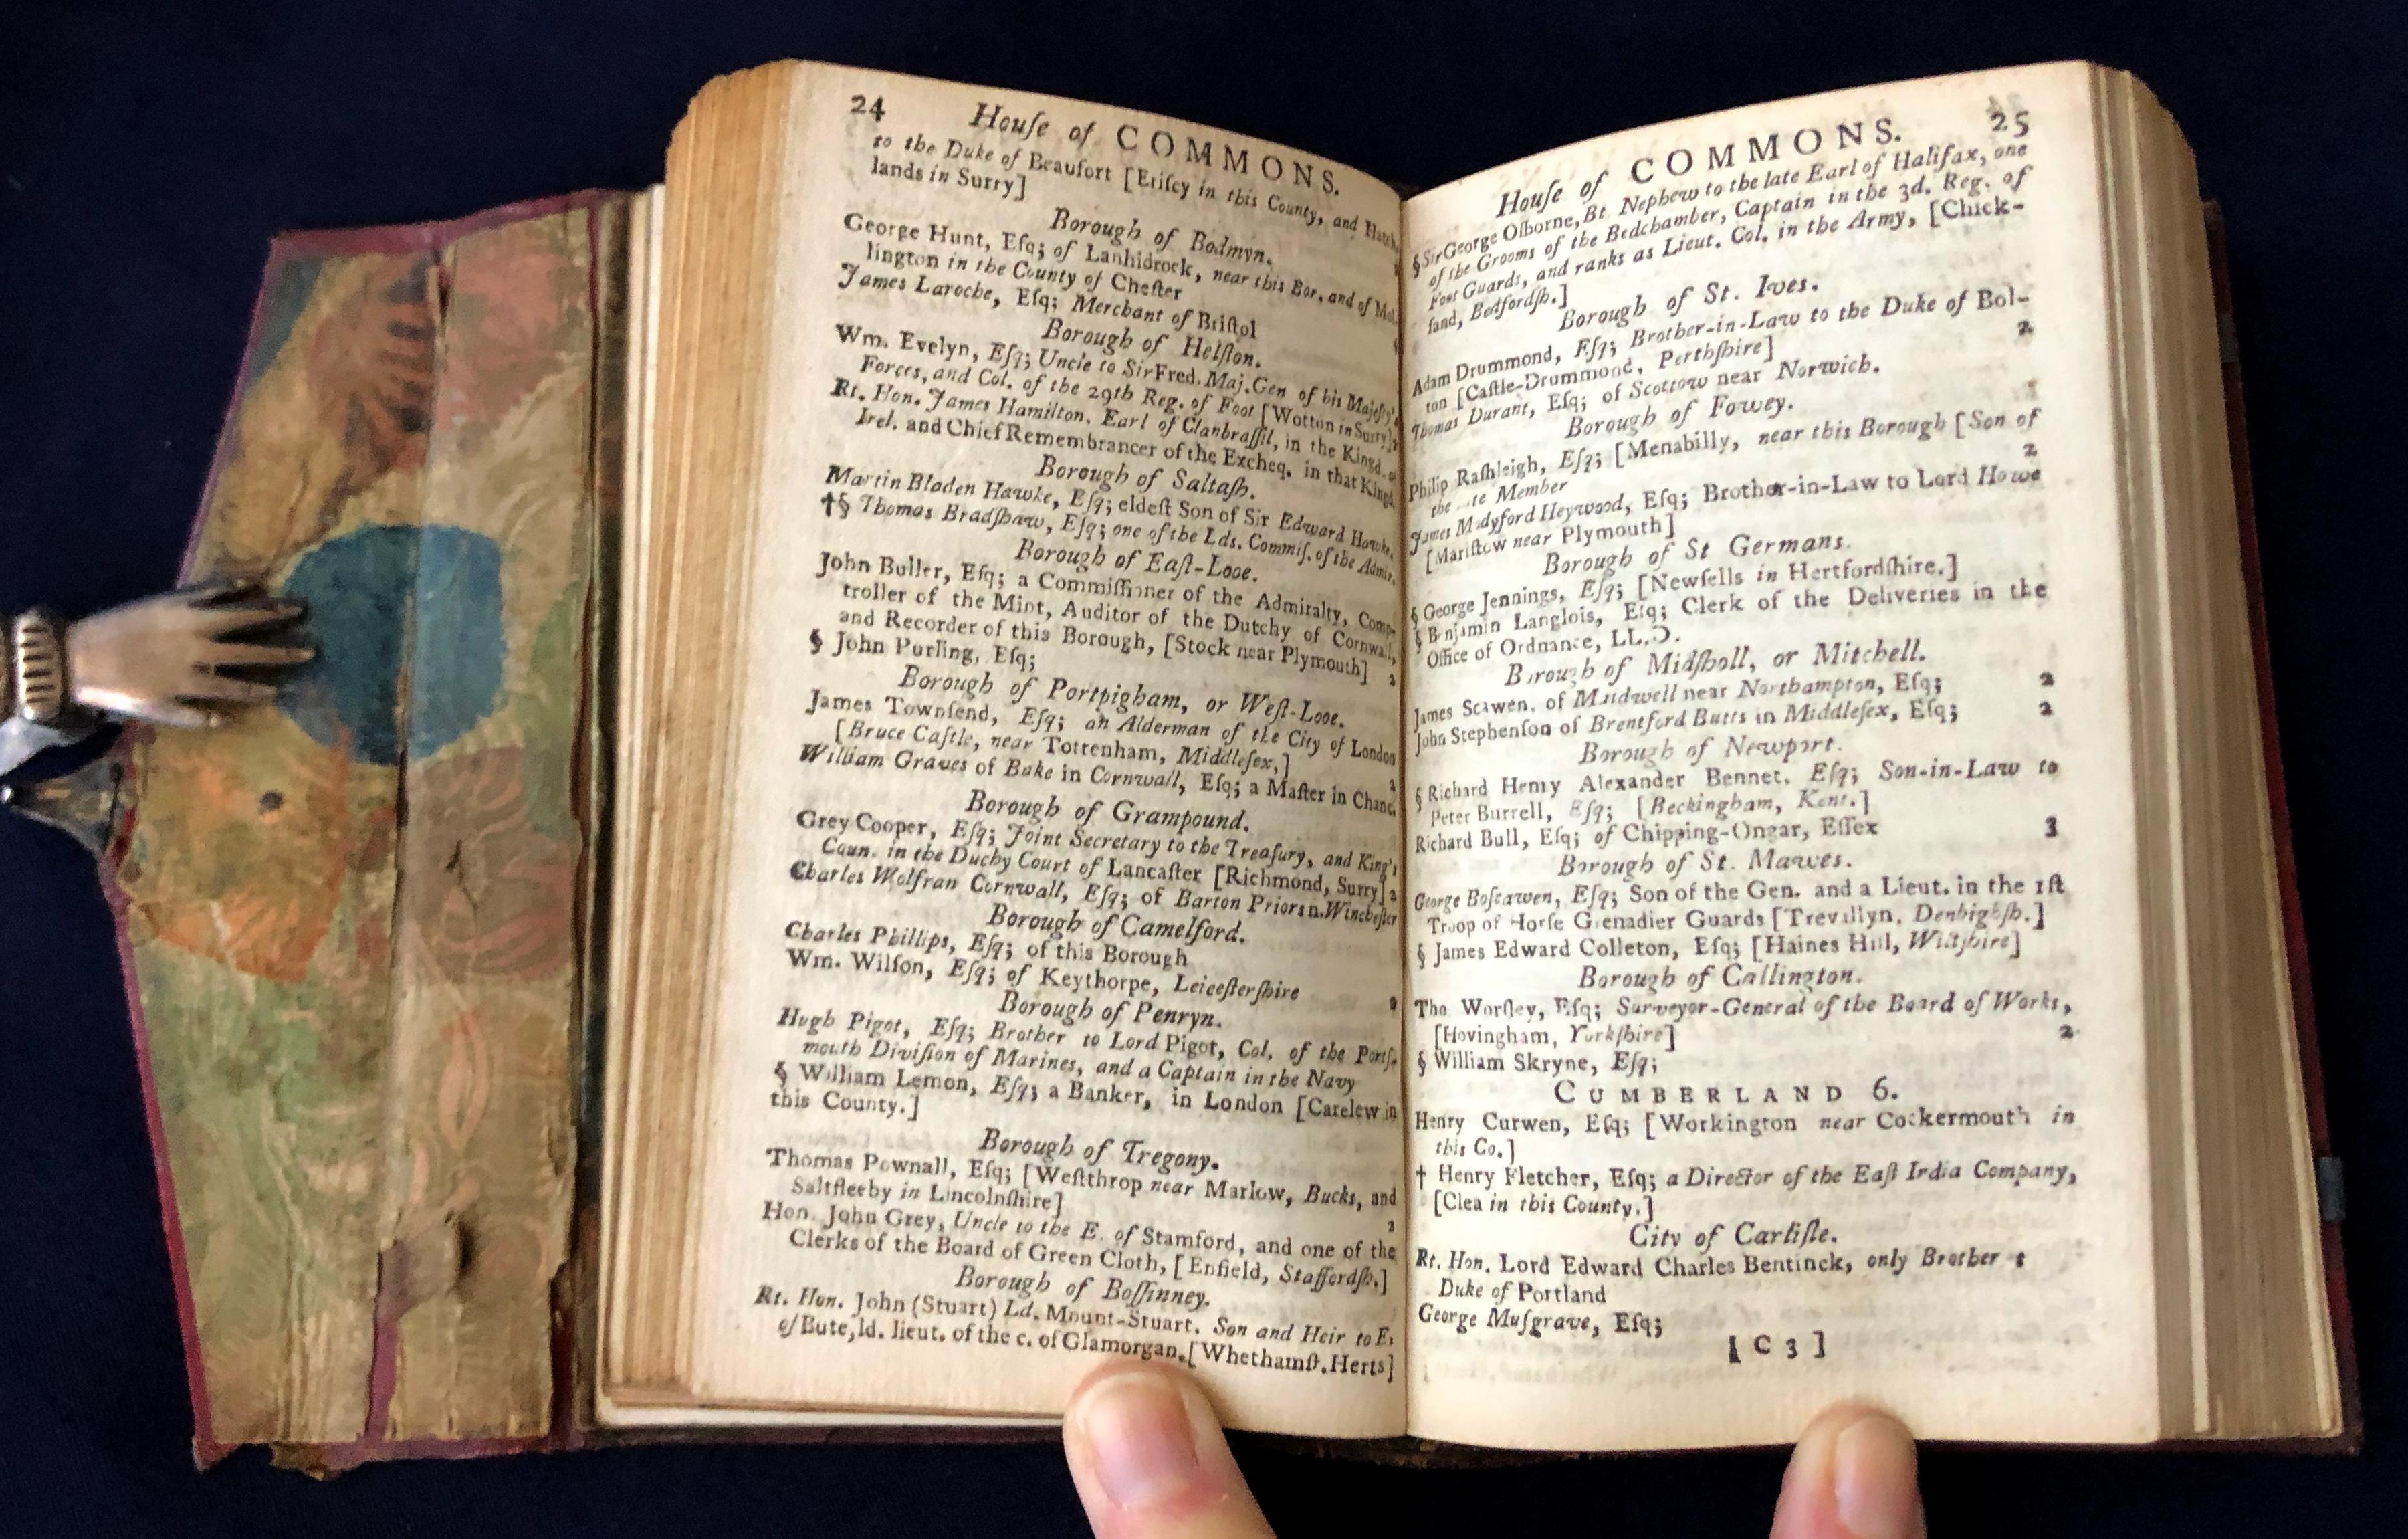 24
House of COMMONS.
to the Duke of Beaufort [Etiſcy in this County, and
lands in Surry]
Borough of Bodmyn.
George Hunt, Eſq; of Lanhidrock, near this Bor. and of
lington in the County of Cheſter
James Laroche, Eſq; Merchant of Briſtol
Borough of Helſton.
Wm. Evelyn, Eſq; Uncle to Sir Fred. Maj. Gen of his Majeſty's
Forces, and Col. of the 29th Reg. of Foot [Wotton in Surry]
Rt. Hon. James Hamilton. Earl of Clanbraſſil, in the Kingd. of
Irel. and Chief Remembrancer of the Excheq. in that Kingd.
Borough of Saltaſh.
Martin Bladen Hawke, Eſq; eldeſt Son of Sir Edward Hawke,
†§ Thomas Bradſhaw, Eſq; one of the Lds. Commiſ. of the Admir.
Borough of Eaſt-Looe.
John Buller, Eſq; a Commiſſioner of the Admiralty, Comp-
troller of the Mint, Auditor of the Dutchy of Cornwall,
and Recorder of this Borough, [Stock near Plymouth] 2
§ John Purling, Eſq;
Borough of Portpigham, or Weſt-Looe.
James Townſend, Eſq; an Alderman of the City of London
[Bruce Caſtle, near Tottenham, Middleſex,]
2
William Graves of Bake in Cornwall, Eſq; a Maſter in Chanc.
Borough of Grampound.
Grey Cooper, Eſq; Joint Secretary to the Treaſury, and King's
Coun. in the Duchy Court of Lancaſter [Richmond, Surry] 2
Charles Wolfran Cornwall, Eſq; of Barton Priors n. Wincheſter
Borough of Camelford.
Charles Phillips, Eſq; of this Borough
Wm. Wilſon, Eſq; of Keythorpe, Leiceſterſhire
Borough of Penryn.
Hugh Pigot, Eſq; Brother to Lord Pigot, Col. of the Portſ-
mouth Diviſion of Marines, and a Captain in the Navy
§ William Lemon, Eſq; a Banker, in London [Carelew in
this County.]
Borough of Tregony.
Thomas Pownall, Eſq; [Weſtthrop near Marlow, Bucks, and
Saltfleeby in Lincolnſhire] 2
Hon. John Grey, Uncle to the E. of Stamford, and one of the
Clerks of the Board of Green Cloth, [Enfield, Staffordſh.]
Borough of Boſſinney.
Rt. Hon. John (Stuart) Ld. Mount-Stuart. Son and Heir to E.
of Bute, ld. lieut. of the c. of Glamorgan. [Whethamſt. Herts]
House of COMMONS. 25
§ Sir George Oſborne, Bt. Nephew to the late Earl of Halifax, one
of the Grooms of the Bedchamber, Captain in the 3d. Reg. of
Foot Guards, and ranks as Lieut. Col. in the Army, [Chick-
ſand, Bedfordſh.]
Borough of St. Ives.
Adam Drummond, Eſq; Brother-in-Law to the Duke of Bol-
ton [Caſtle-Drummond, Perthſhire] 2
Thomas Durant, Eſq; of Scottow near Norwich.
Borough of Fowey.
Philip Raſhleigh, Eſq; [Menabilly, near this Borough [Son of
the Member 2
James Modyford Heywood, Eſq; Brother-in-Law to Lord Howe
[Mariſtow near Plymouth]
Borough of St Germans.
§ George Jennings, Eſq; [Newſells in Hertfordſhire.]
§ Benjamin Langlois, Eſq; Clerk of the Deliveries in the
Office of Ordnance, LL.D.
Borough of Midſholl, or Mitchell.
James Scawen, of Maidwell near Northampton, Eſq; 2
John Stephenſon of Brentford Butts in Middleſex, Eſq; 2
Borough of Newport.
§ Richard Henry Alexander Bennet. Eſq; Son-in-Law to
Peter Burrell, Eſq; [Beckingham, Kent.]
Richard Bull, Eſq; of Chipping-Ongar, Eſſex 3
Borough of St. Mawes.
George Boſcawen, Eſq; Son of the Gen. and a Lieut. in the 1ſt
Troop of Horſe Grenadier Guards [Trevallyn, Denbighſh.]
§ James Edward Colleton, Eſq; [Haines Hill, Wiltſhire]
Borough of Callington.
Tho Worſley, Eſq; Surveyor-General of the Board of Works,
[Hovingham, Yorkſhire] 2
§ William Skryne, Eſq;
CUMBERLAND 6.
Henry Curwen, Eſq; [Workington near Cockermouth in
this Co.]
† Henry Fletcher, Eſq; a Director of the Eaſt India Company,
[Clea in this County.]
City of Carliſle.
Rt. Hon. Lord Edward Charles Bentinck, only Brother t
Duke of Portland
George Muſgrave, Eſq;
[C 3]